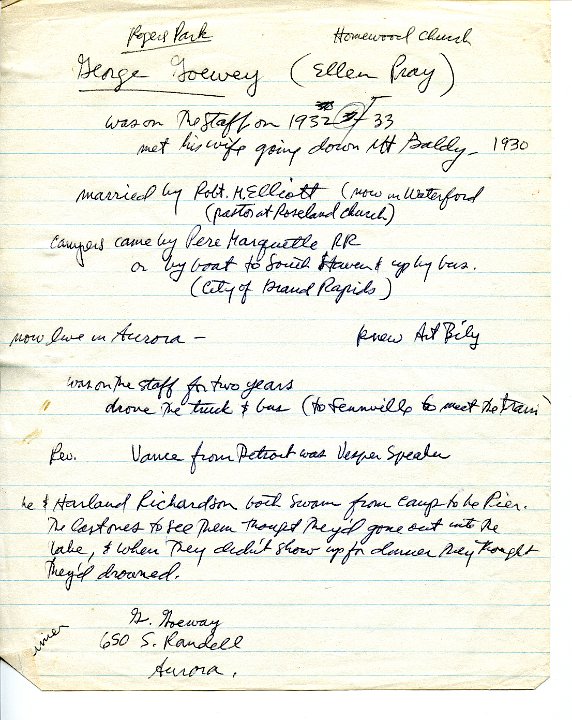 Rogers Park Homewood Church
George Goewey (Ellen Pray)
was on the staff on 1932 + 33
met his wife going down Mt Baldy - 1930
married by Robt. M. Elliott (now in Waterford
(pastor at Roseland church)
campers came by Pere Marquette RR
or by boat to South Haven & up by bus.
(City of Grand Rapids)
now live in Aurora - knew Art Bily
was on the staff for two years
drove the truck & bus (to Fennville to meet the train
Rev. Vance from Detroit was Vesper Speaker
he & Harland Richardson both swam from camp to the Pier.
The last ones to see them thought they'd gone out into the
lake, & when they didn't show up for dinner they thought
they'd drowned.
G. Goeway
650 S. Randell
Aurora.